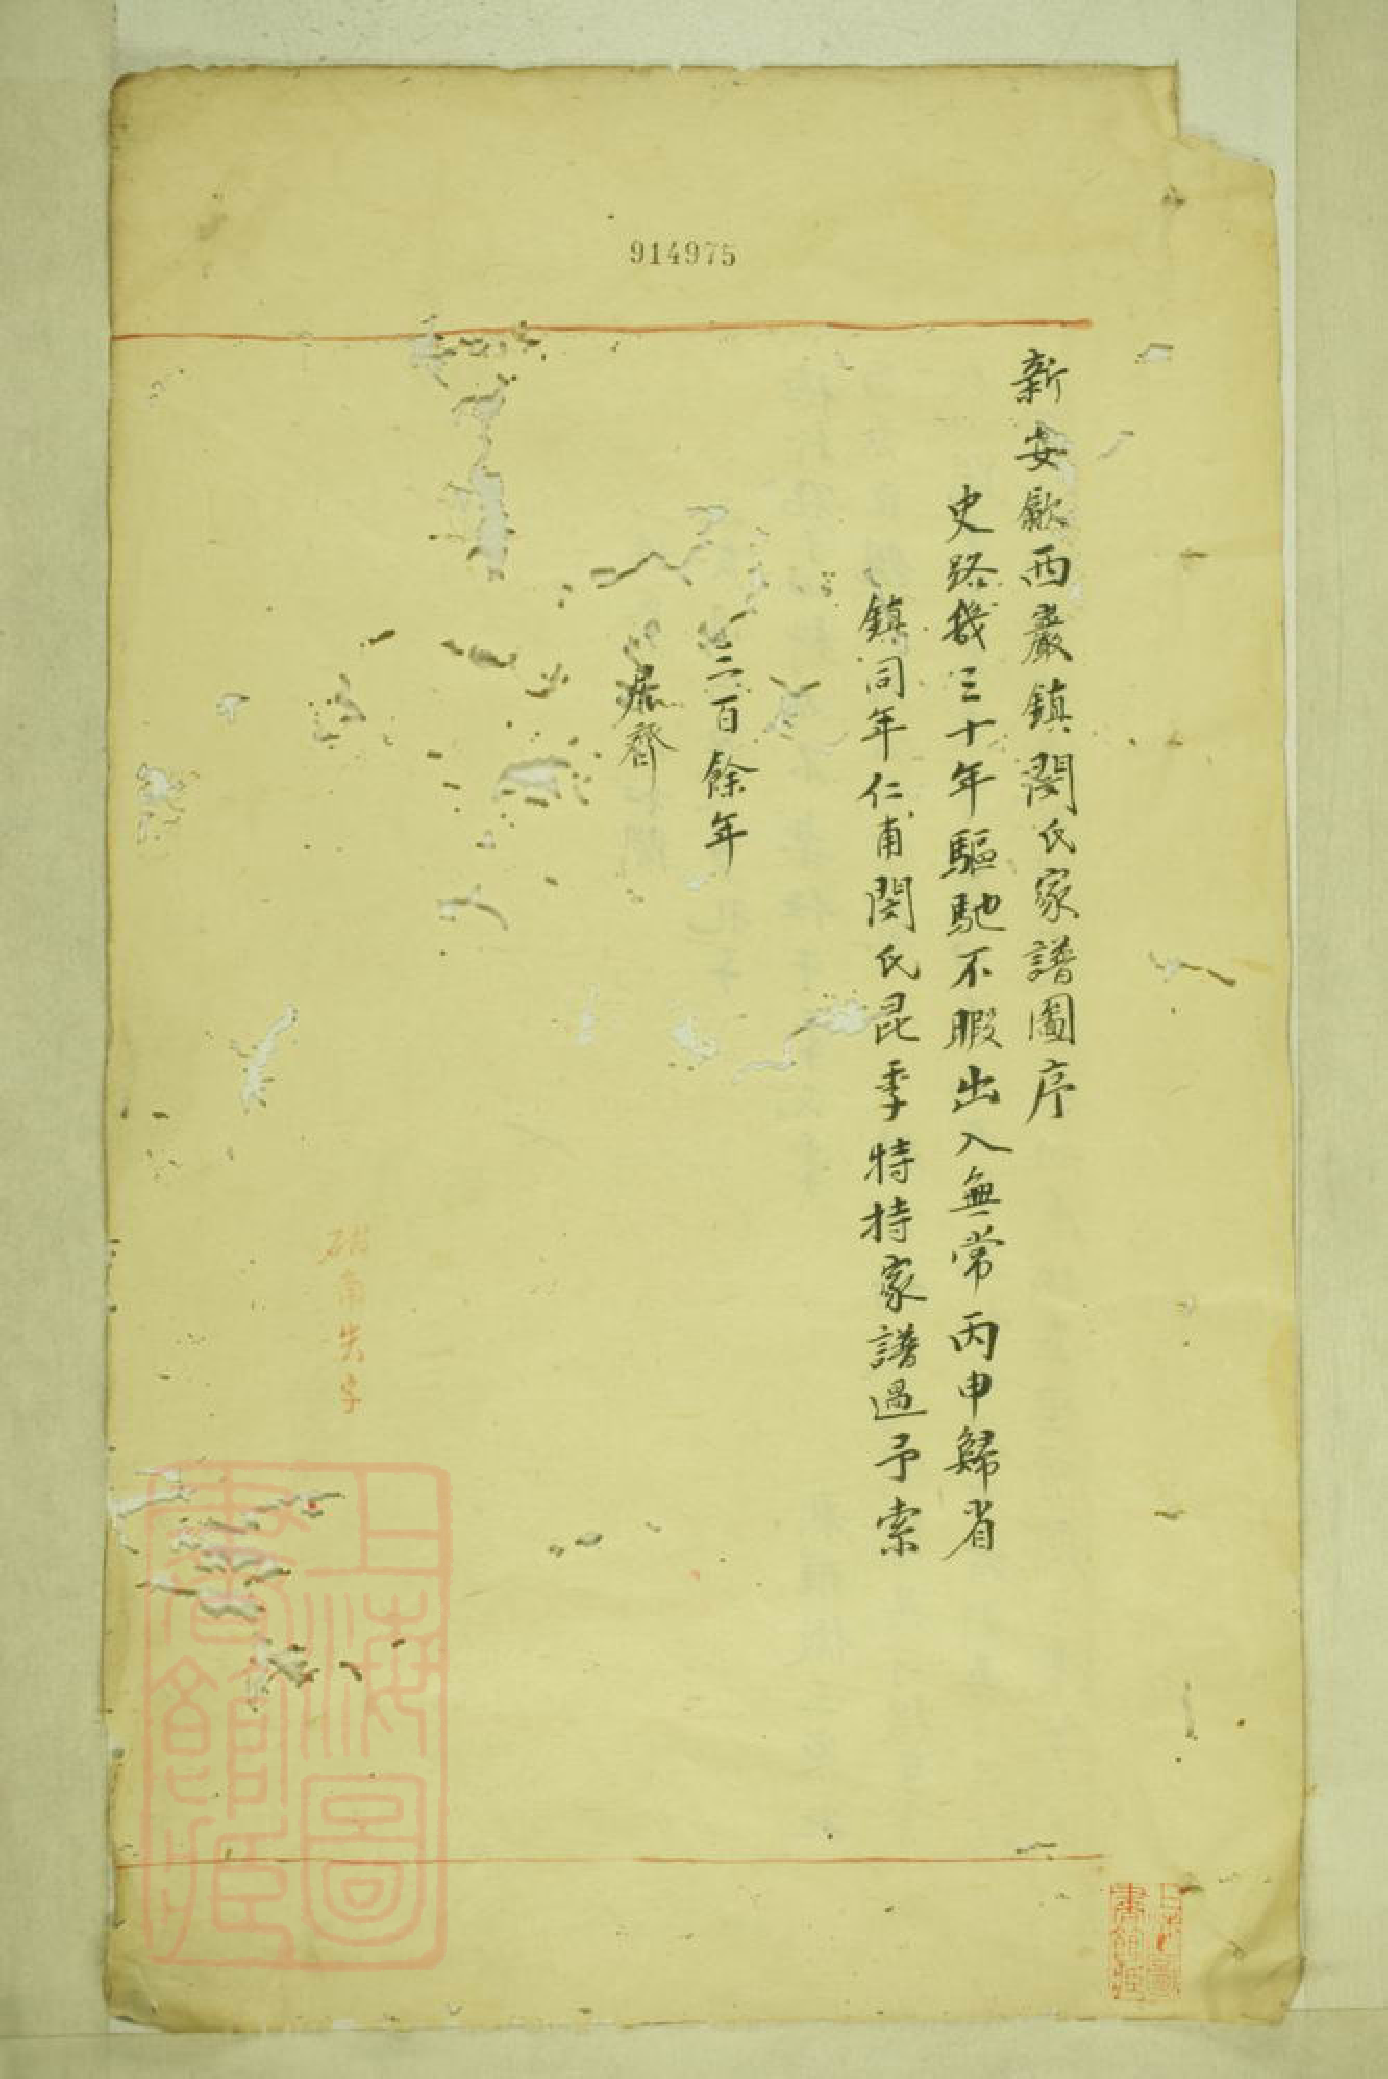 914975
新安歙西巖鎮閔氏家譜圖序
史路幾三十年驅馳不暇出入無常丙申歸省
鎮同年仁甫閔氏昆季特持家譜過予索
三百餘年
居齊
失字
上海圖
書館藏
上海圖
書館藏